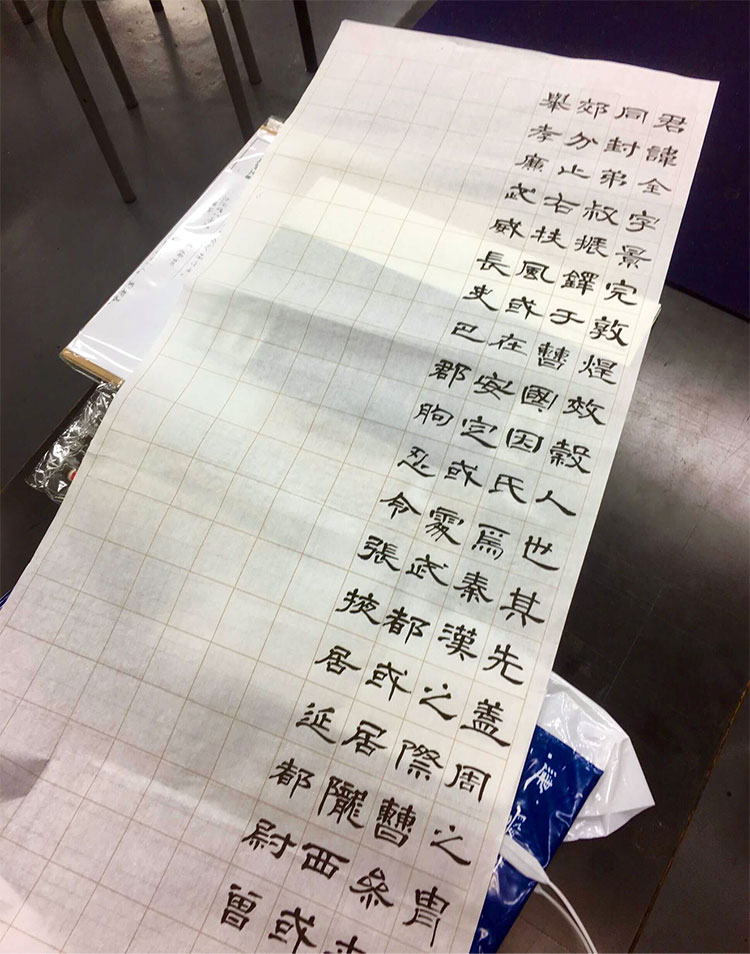 君諱全字景完敦煌效穀人也其先蓋周之胄
同封弟叔振鐸于曹國因氏焉秦漢之際曹參
郊分止右扶風或在安定或處武都或居隴西或
舉孝廉武威長史巴郡朐忍令張掖居延都尉曾